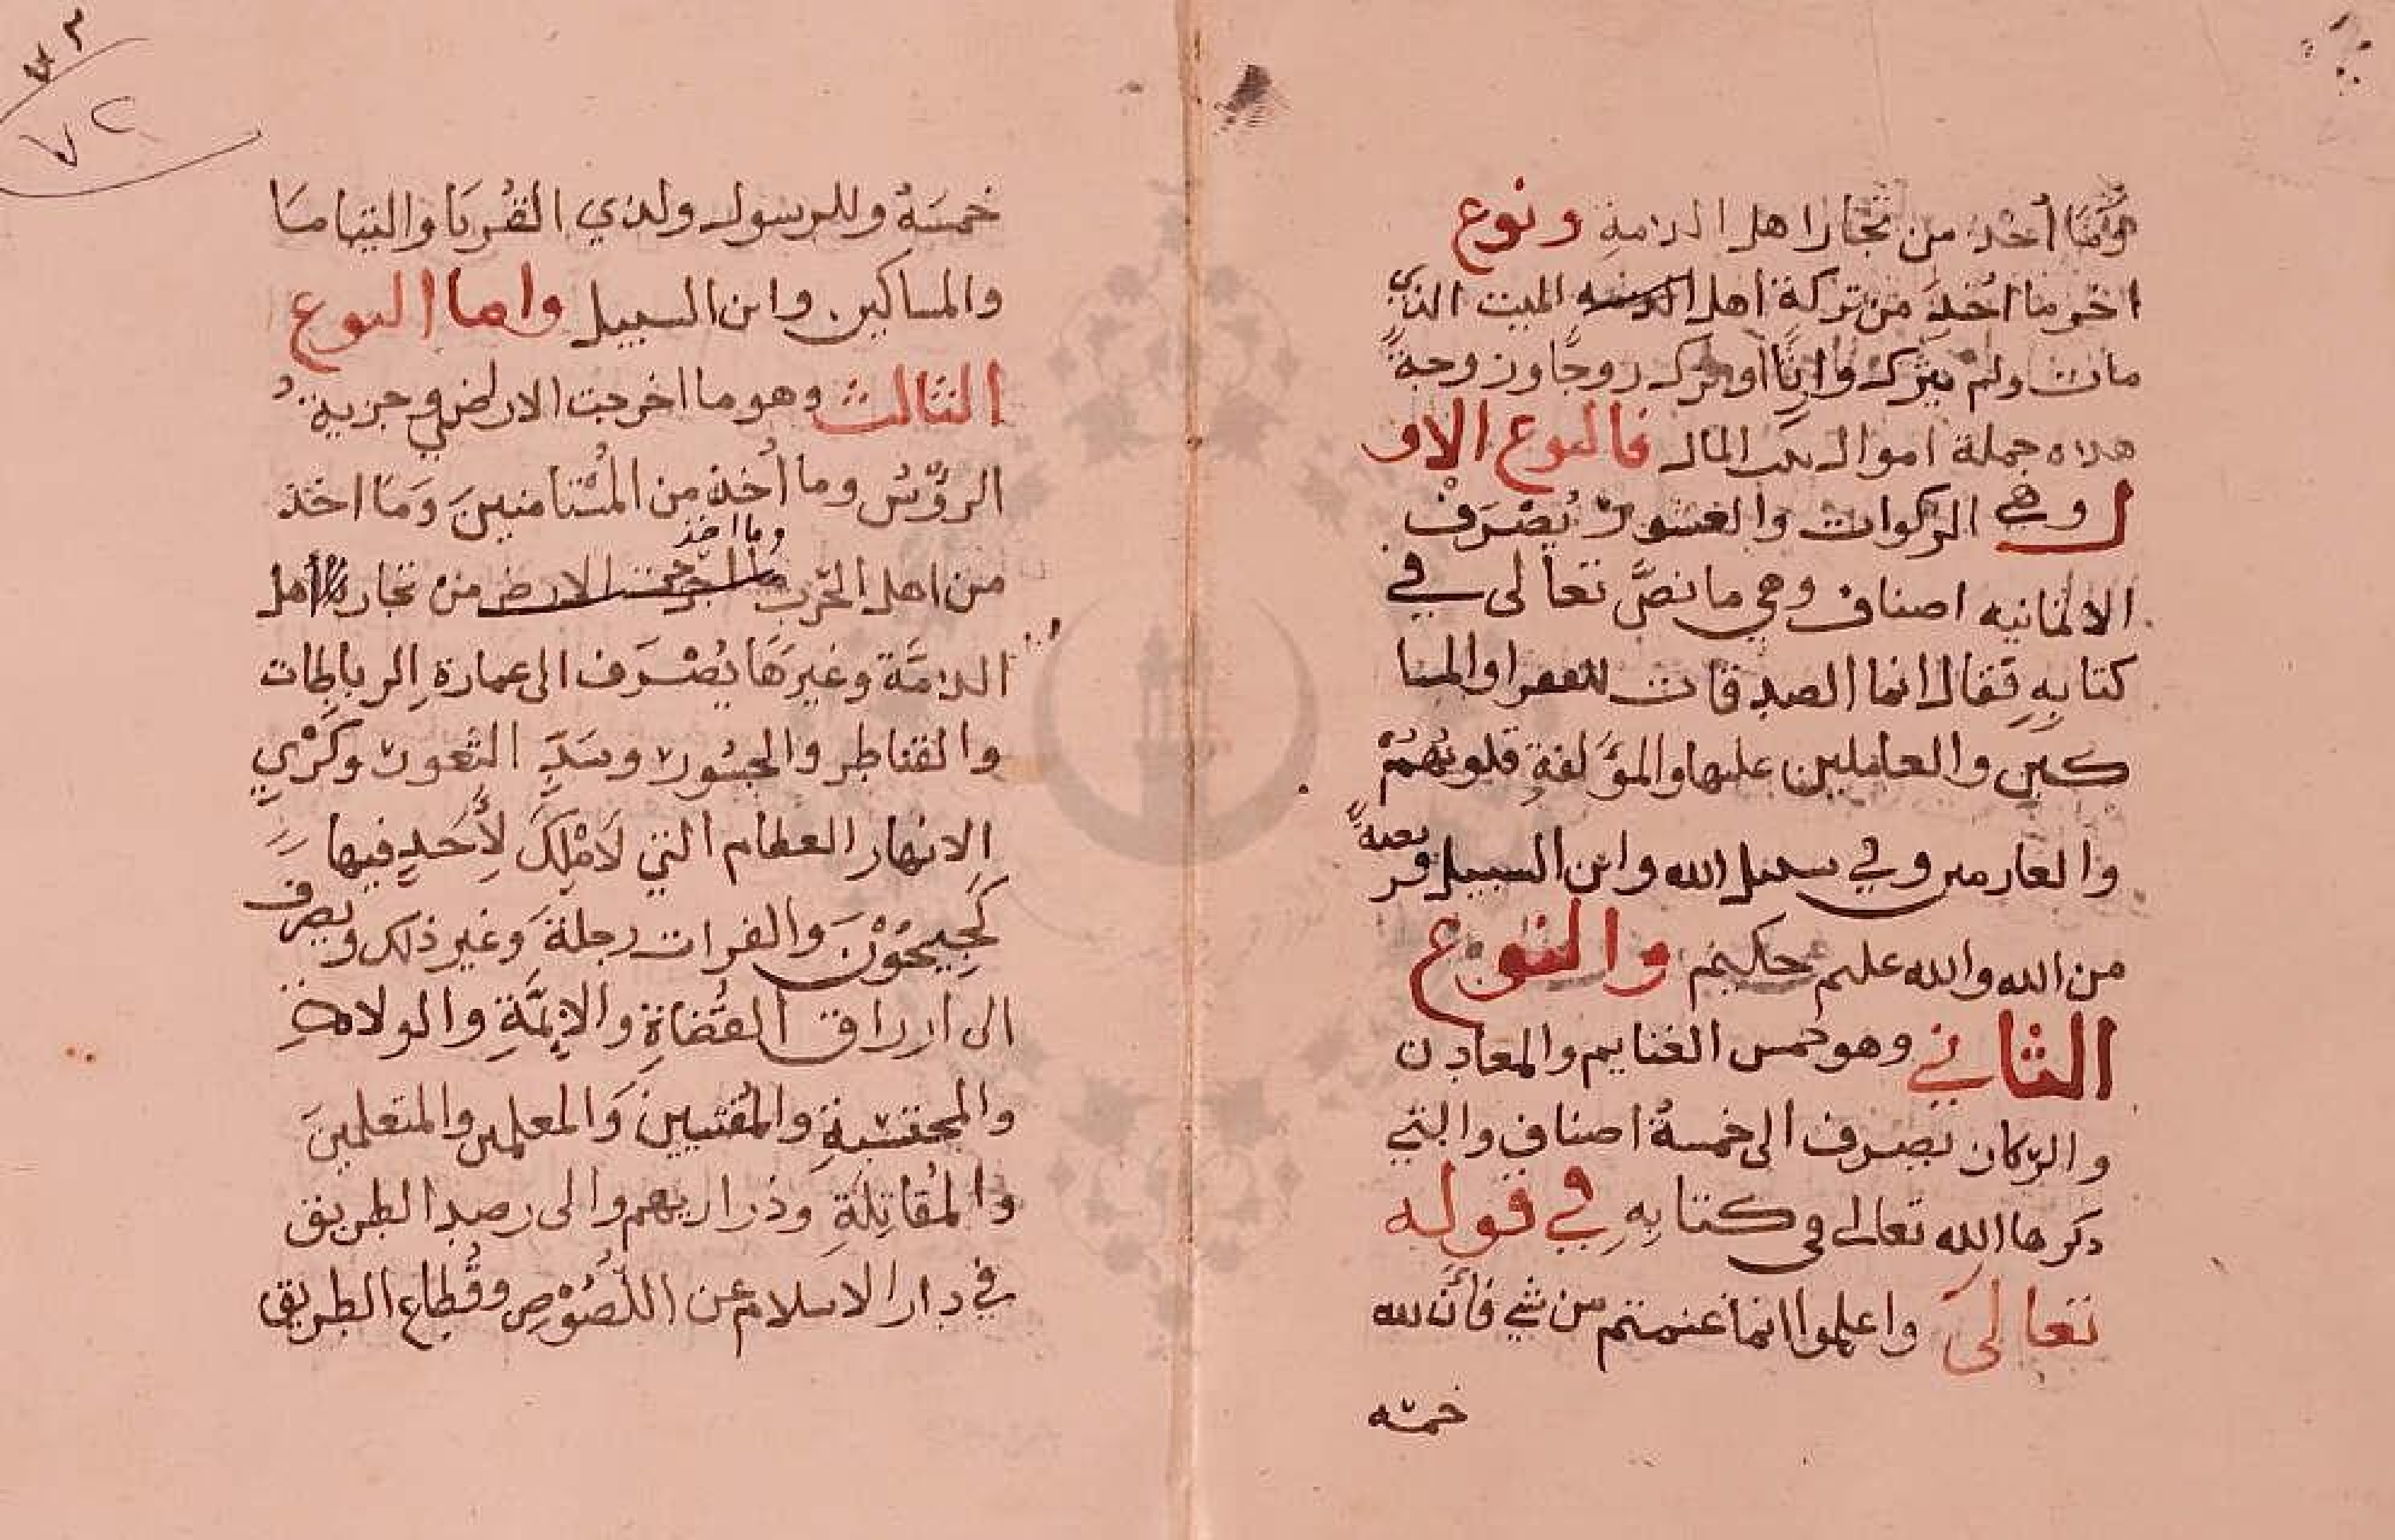 ومما أُخذ من تجار اهل الذمةِ ونوع
اخر ما اُخِذَ من تركة اهل الميت الذي
مات ولم يترك وارثًا او ترك زوجًا او زوجةً
هذه جملة اموال بيت المال فالنوع الاو
ل وهي الزكوات والعشور يُصْرَفْ
الا لثمانيه اصناف وهي ما نصَّ تعالى في
كتابِهِ فقال انما الصدقات للفقرا والمسا
كين والعاملين عليها والمؤَلفةِ قلوبُهُمْ
والغارمين وفي سبيل الله وابن السبيل فريضةً
من الله والله عليم حكيم والنوع
الثاني وهو خمس الغنايم والمعادن
والركاز يصرف الى خمسةُ اصناف والتي
ذكرها الله تعالى في كتابِهِ في قوله
تعالى واعلموا انما غنمتم من شي فأنَّ لله
خمسه
٧٢
٧٢
خمسَهُ وللرسول ولذي القُربَا واليتاما
والمساكين وابن السبيل واما النوع
الثالث وهو ما اخرجت الارض وجزية
الرؤُس وما أُخذ من المُسْتامنينَ وَمَا اخذ
من اهل الحَرب وما اخذ من تجار اهل
الذمَّة وغيرَهَا يُصْرَف الى عمارة الرباطات
والقناطِر والجسُور وسَدِّ الثغور وكَرْيِ
الانهار العظام التي لَامْلِكَ لِأَحَدٍ فيها
كَجِيحُوْنَ والفرات دجلةَ وغير ذلك ويصرف
الى ارزاق القُضَاةِ والايمَّةِ والولاة
والمحتسبةِ والمُفْتيينَ والمعلمين والمتعلمينَ
والمُقاتِلَةِ وذراريهم والى رصد الطريق
في دار الاسلام عن اللُّصُوْصِ وقُطاع الطريق